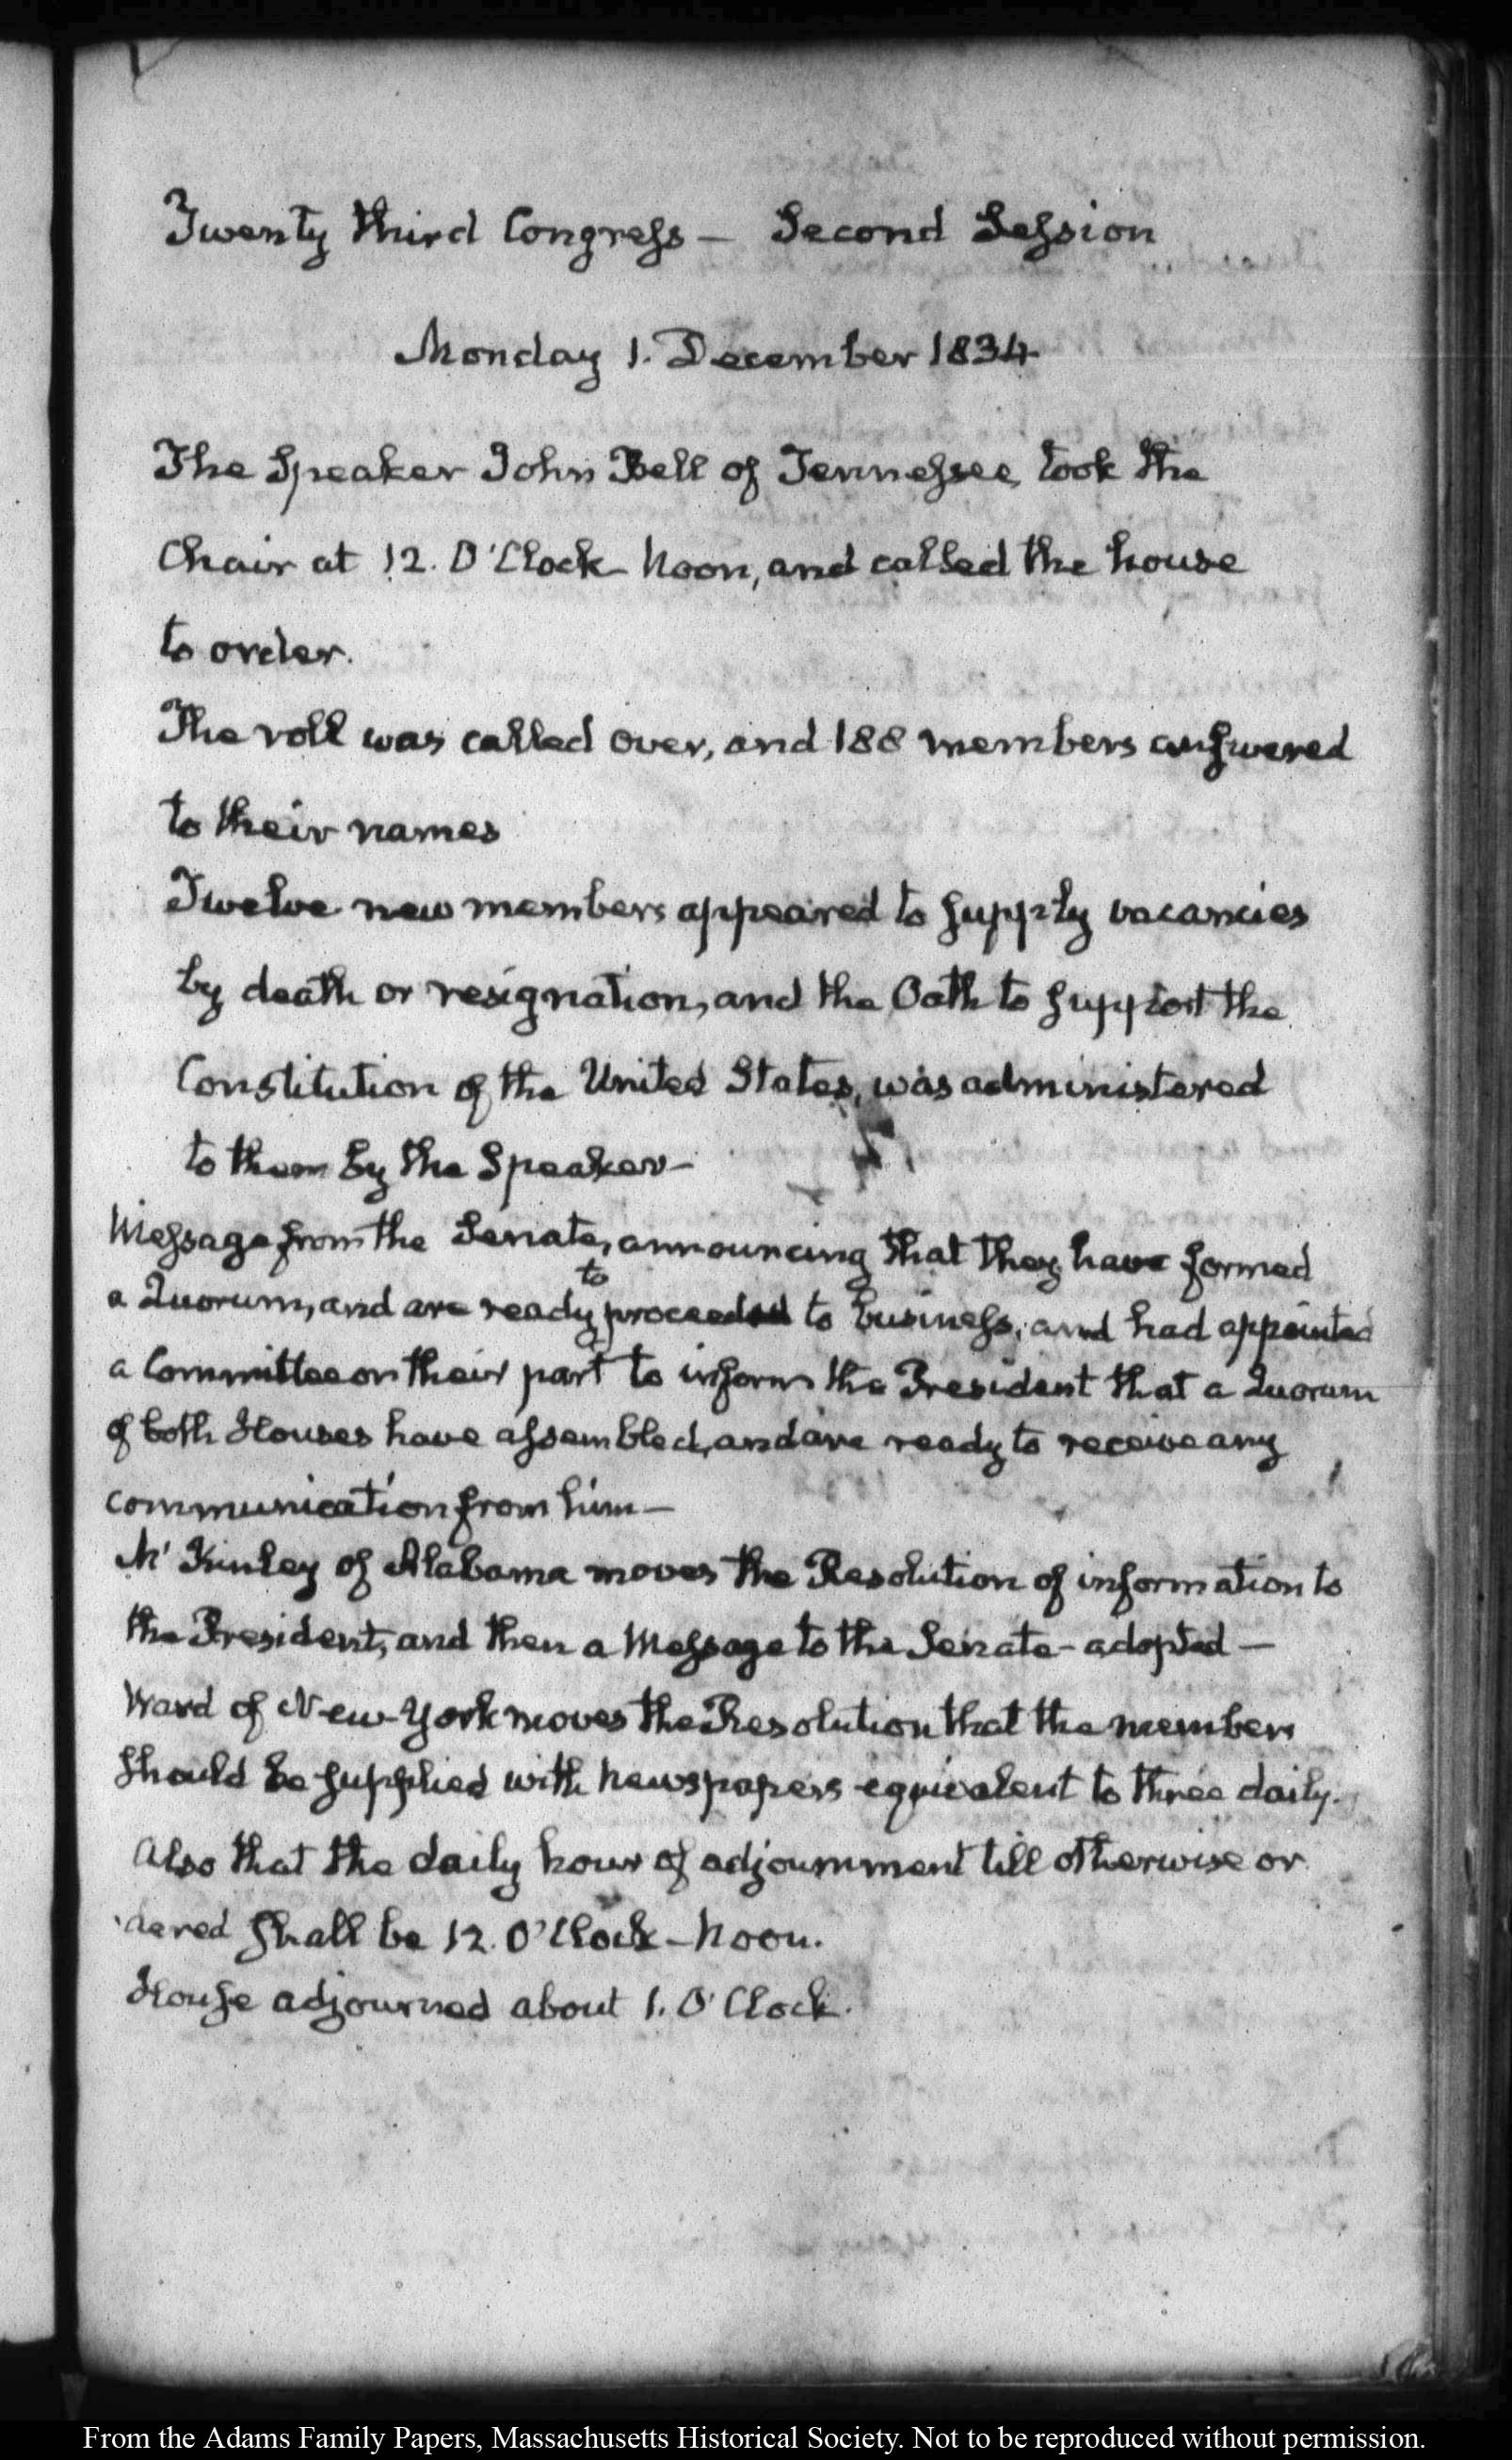 Twenty third Congress — Second Session
Monday 1. December 1834
The Speaker John Bell of Tennessee, took the
Chair at 12. O'Clock Noon, and called the house
to order.
The roll was called over, and 188 members answered
to their names
Twelve new members appeared to supply vacancies
by death or resignation, and the Oath to support the
Constitution of the United States, was administered
to them by the Speaker—
Message from the Senate, announcing that they have formed
to
a Quorum, and are ready proceed to business, and had appointed
a Committee on their part to inform the President that a Quorum
of both Houses have assembled, and are ready to receive any
communication from him—
Mc Kinley of Alabama moves the Resolution of information to
the President, and then a Message to the Senate - adopted —
Ward of New-York moves the Resolution that the members
should be supplied with Newspapers equivalent to three daily.
Also that the daily hour of adjournment till otherwise or
dered shall be 12. O'Clock - Noon.
House adjourned about 1. O'Clock.
From the Adams Family Papers, Massachusetts Historical Society. Not to be reproduced without permission.